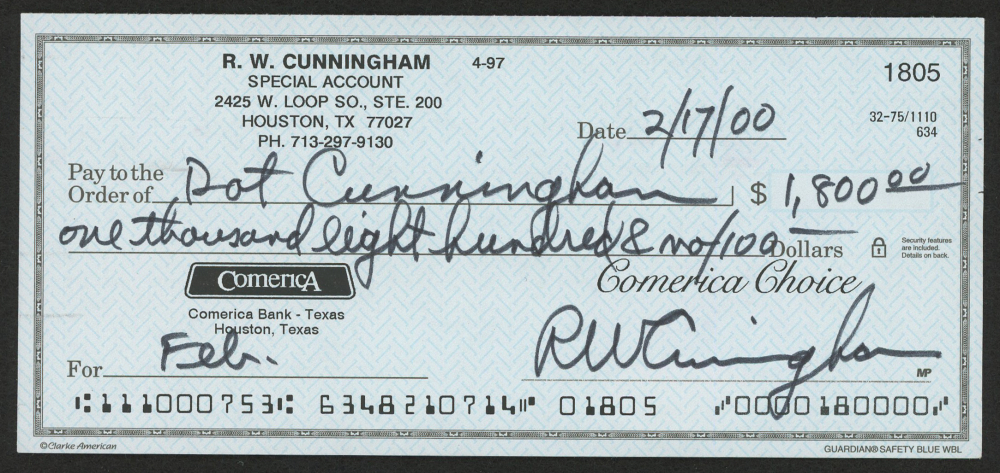 R. W. CUNNINGHAM 4-97
SPECIAL ACCOUNT
2425 W. LOOP SO., STE. 200
HOUSTON, TX 77027
PH. 713-297-9130
1805
32-75/1110
634
Date 2/17/00
Pay to the
Order of Dot Cunningham $ 1,800 00
one thousand eight hundred & no/100 Dollars
Security features
are included.
Details on back.
ComericA
Comerica Choice
Comerica Bank - Texas
Houston, Texas
For Feb.
RW Cunningham
MP
⑆111000753⑆ 6348210714⑈ 01805 ⑈0000180000⑈
©Clarke American
GUARDIAN® SAFETY BLUE WBL